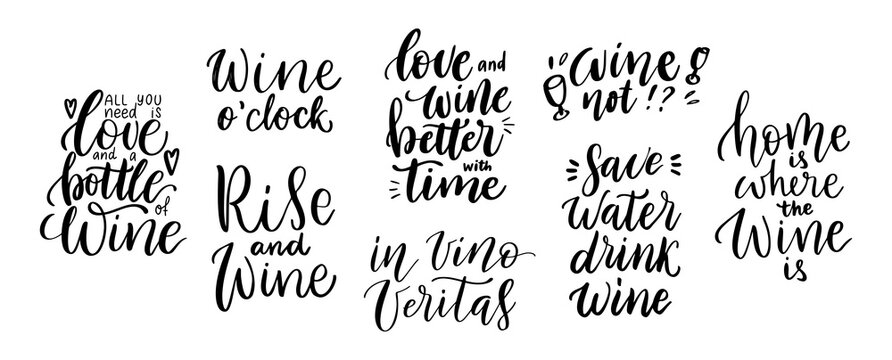 ALL YOU
need is
love
and a
bottle
of
Wine
Wine
o'clock
Rise
and
Wine
love and
wine
better
with
time
in vino
Veritas
Wine
not!?
Save
Water
drink
Wine
home
is
where
the
Wine
is